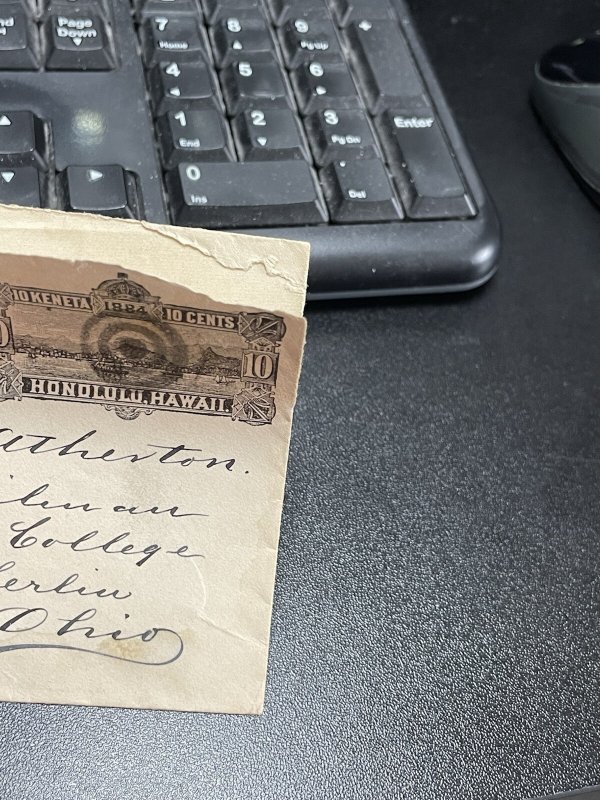 Page
Down
7
Home
8
9
PgUp
+
4
5
6
1
End
2
3
Pg Dn
Enter
0
Ins
.
Del
10 KENETA 1884 10 CENTS
10
HONOLULU, HAWAII.
Atherton.
College
Ohio